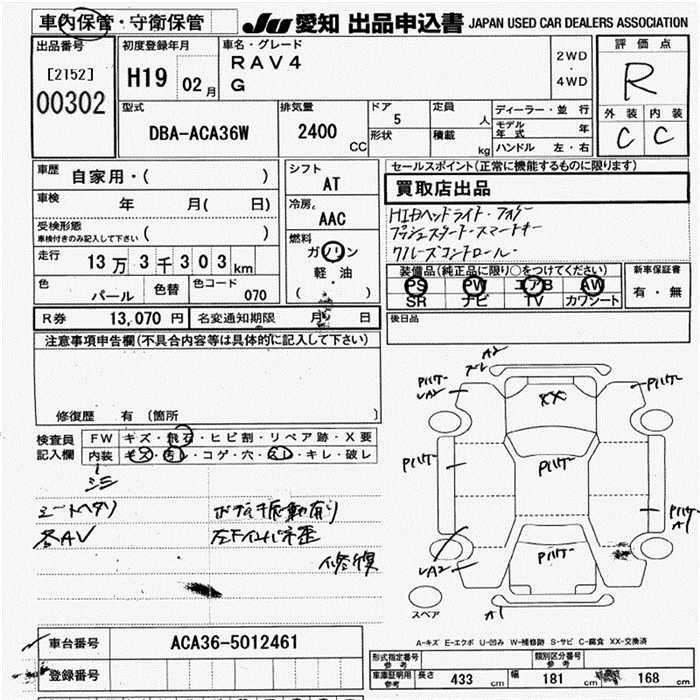 車内保管・守衛保管
JU 愛知 出品申込書 JAPAN USED CAR DEALERS ASSOCIATION
出品番号
[2152]
00302
初度登録年月
H19 02月
車名・グレード
RAV4
G
2WD
・
4WD
評価点
R
外装 内装
C C
型式
DBA-ACA36W
排気量
2400 CC
ドア
5
形状
定員
人
積載
kg
ディーラー・並行
モデル年式 年
ハンドル 左・右
車歴
自家用・( )
車検 年 月( 日)
受検形態
車検付きのみ記入して下さい ( )
走行 13万3千303km
色 パール 色替 色コード 070
シフト
AT
冷房
AAC
燃料
ガソリン
軽・油
( )
セールスポイント(正常に機能するものに限ります)
買取店出品
HIDヘッドライト・フォグ
プッシュスタート・スマートキー
クルーズコントロール
装備品(純正品に限り○をつけてください)
PS PW エアB AW
SR ナビ TV カワシート
新車保証書
有・無
後日品
R券 13,070円 名変通知期限 月 日
注意事項申告欄(不具合内容等は具体的に記入して下さい)
修復歴 有 〔箇所 〕
検査員
記入欄
FW キズ・飛石・ヒビ割・リペア跡・X要
内装 キズ・汚レ・コゲ・穴・スレ・キレ・破レ
シミ
シートヘタリ
ボディ振動有り
修復
A2
XX
A1
A2
A1
スペア
A-キズ E-エクボ U-凹み W-補修跡 S-サビ C-腐食 XX-交換済
車台番号 ACA36-5012461
登録番号
形式指定番号
参考
類別区分番号
参考
車庫証明用
参考
長さ 433 cm 幅 181 cm 168 cm